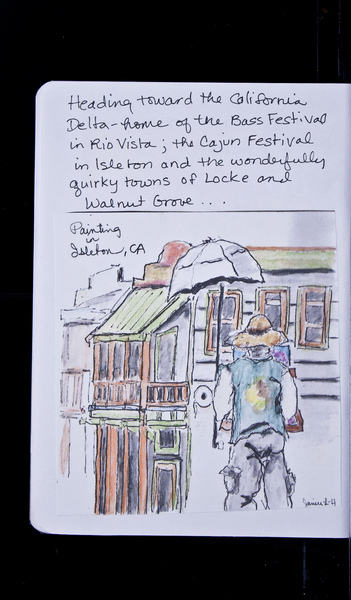 Heading toward the California
Delta-home of the Bass Festival
in Rio Vista; the Cajun Festival
in Isleton and the wonderfully
quirky towns of Locke and
Walnut Grove...
Painting
in
Isleton, CA